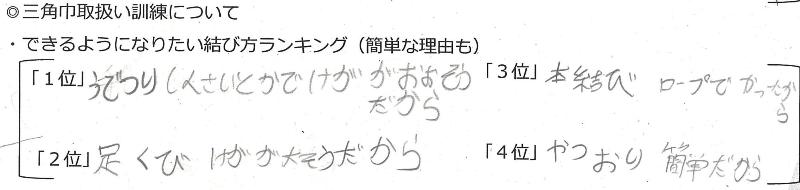 ◎三角巾取扱い訓練について
・できるようになりたい結び方ランキング（簡単な理由も）
「１位」うでつり しんさいとかでけががおおそう
だから
「２位」足くび けがが大そうだから
「３位」本結び ロープでかったか
ら
「４位」やつおり 簡単だから